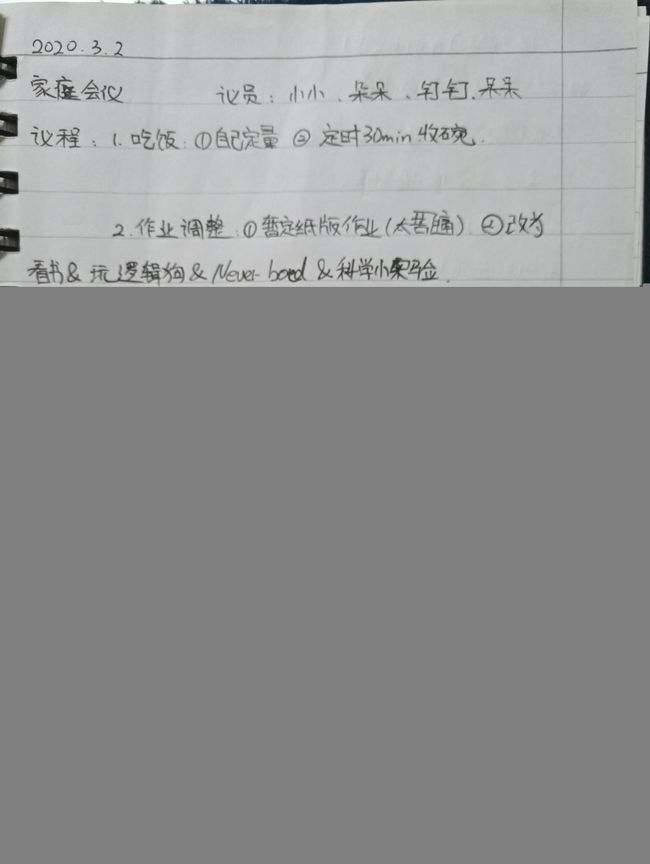 2020.3.2
家庭会议 议员：小小、朵朵、钉钉、呆呆
议程：1.吃饭：①自己定量 ② 定时30min收碗.
2.作业调整：①暂定纸版作业(太苦痛) ②改为
看书& 玩逻辑狗& Never bored & 科学小实验.